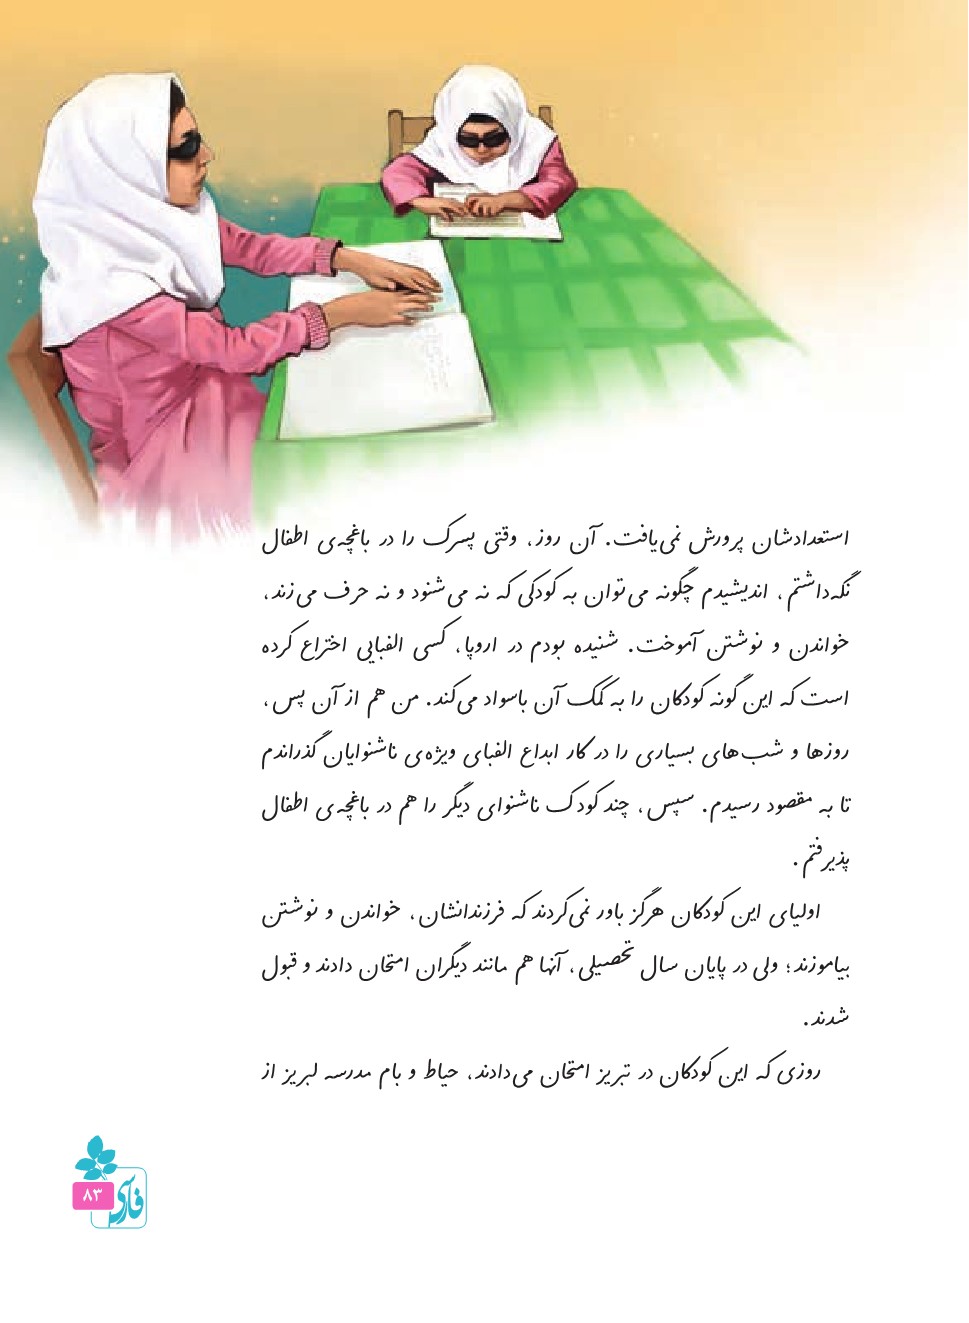 استعدادشان پرورش نمی‌یافت. آن روز، وقتی پسرک را در باغچه‌ی اطفال
نگه‌داشتم، اندیشیدم چگونه می‌توان به کودکی که نه می‌شنود و نه حرف می‌زند،
خواندن و نوشتن آموخت. شنیده بودم در اروپا، کسی الفبایی اختراع کرده
است که این گونه کودکان را به کمک آن باسواد می‌کند. من هم از آن پس،
روزها و شب‌های بسیاری را در کار ابداع الفبای ویژه‌ی ناشنوایان گذراندم
تا به مقصود رسیدم. سپس، چند کودک ناشنوای دیگر را هم در باغچه‌ی اطفال
پذیرفتم.
اولیای این کودکان هرگز باور نمی‌کردند که فرزندانشان، خواندن و نوشتن
بیاموزند؛ ولی در پایان سال تحصیلی، آنها هم مانند دیگران امتحان دادند و قبول
شدند.
روزی که این کودکان در تبریز امتحان می‌دادند، حیاط و بام مدرسه لبریز از
فارسی
۸۳